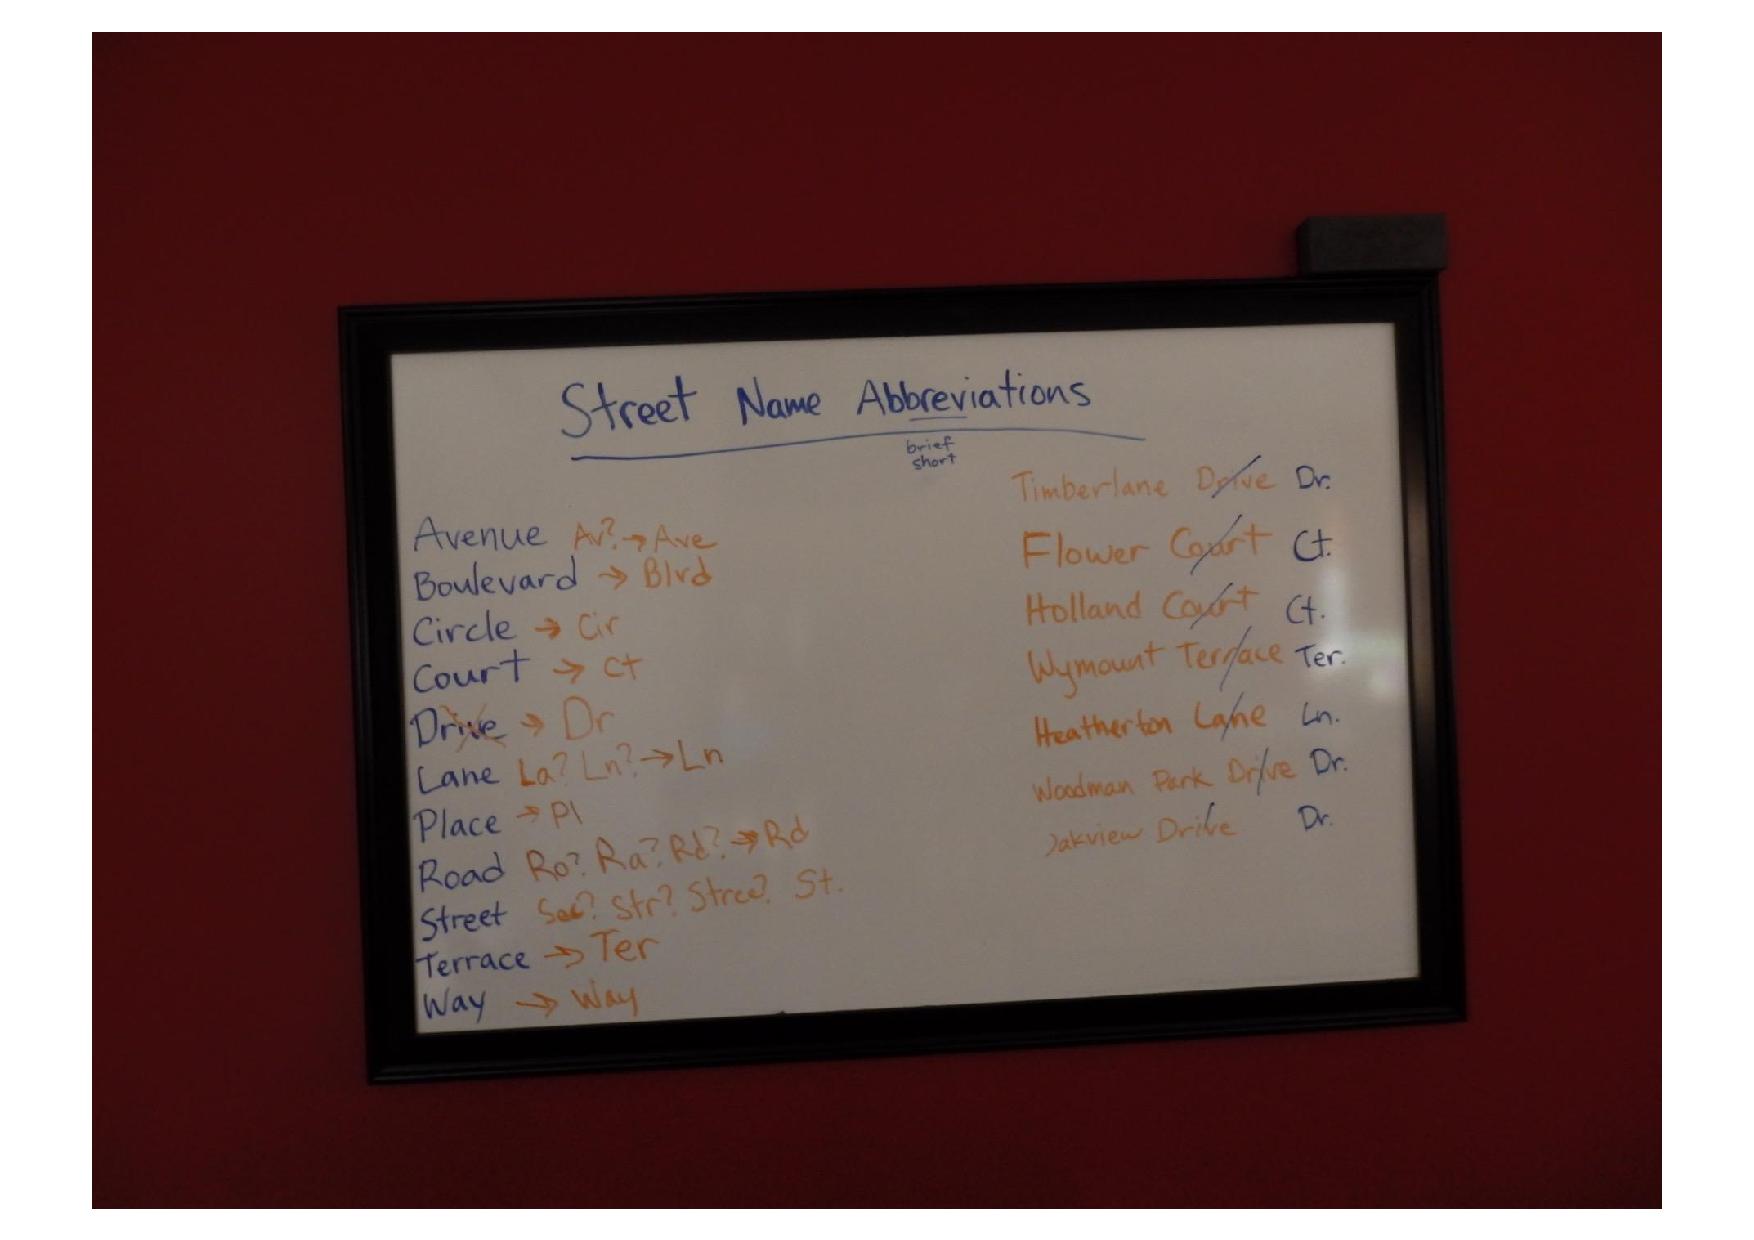 Street Name Abbreviations
brief
short
Avenue Av? → Ave
Boulevard → Blvd
Circle → Cir
Court → Ct
Drive → Dr
Lane La? Ln? → Ln
Place → Pl
Road Ro? Ra? Rd? → Rd
Street Str? Stree? St.
Terrace → Ter
Way → Way
Timberlane Drive Dr.
Flower Court Ct.
Holland Court Ct.
Wymount Terrace Ter.
Heatherton Lane Ln.
Woodman Park Drive Dr.
Drive Dr.